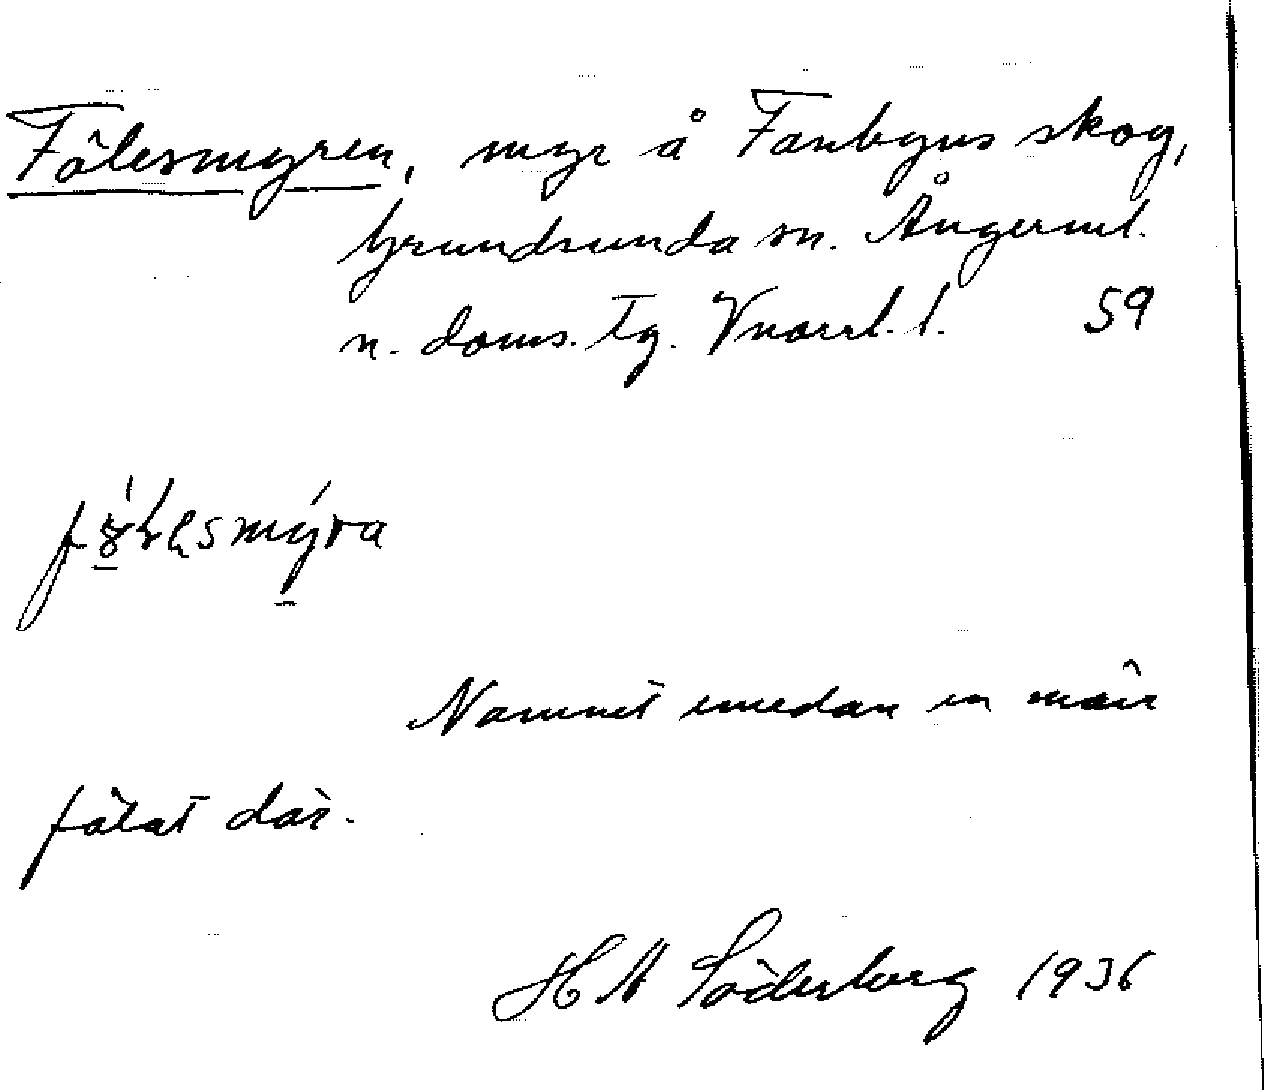 Fölesmyren, myr å Fanbyns skog,
Grundsunda sn. Ångerml.
n. doms. tg. Vnorrl. l. 59
Namnet emedan en märr
fölat där.
H A Söderberg 1936